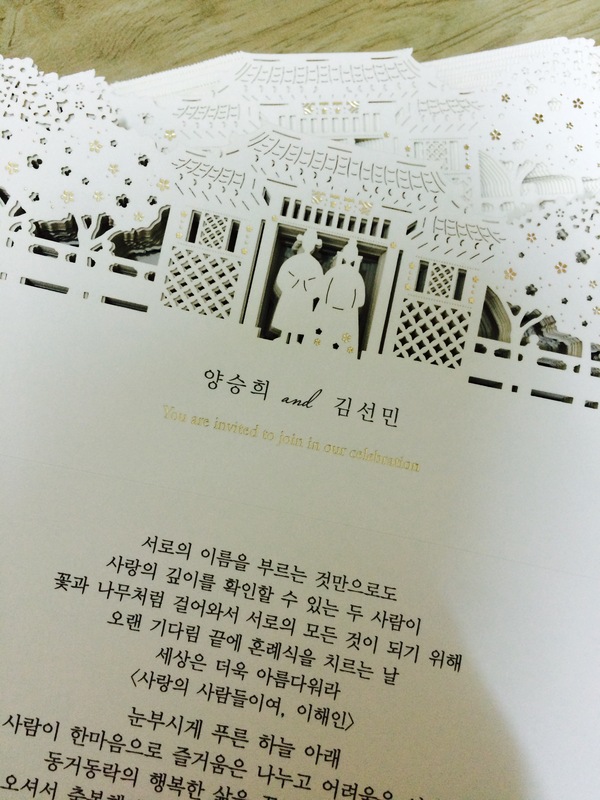 양승희 and 김선민
You are invited to join in our celebration
서로의 이름을 부르는 것만으로도
사랑의 깊이를 확인할 수 있는 두 사람이
꽃과 나무처럼 걸어와서 서로의 모든 것이 되기 위해
오랜 기다림 끝에 혼례식을 치르는 날
세상은 더욱 아름다워라
<사랑의 사람들이여, 이해인>
눈부시게 푸른 하늘 아래
사람이 한마음으로 즐거움은 나누고 어려움은
동거동락의 행복한 삶을
오셔서